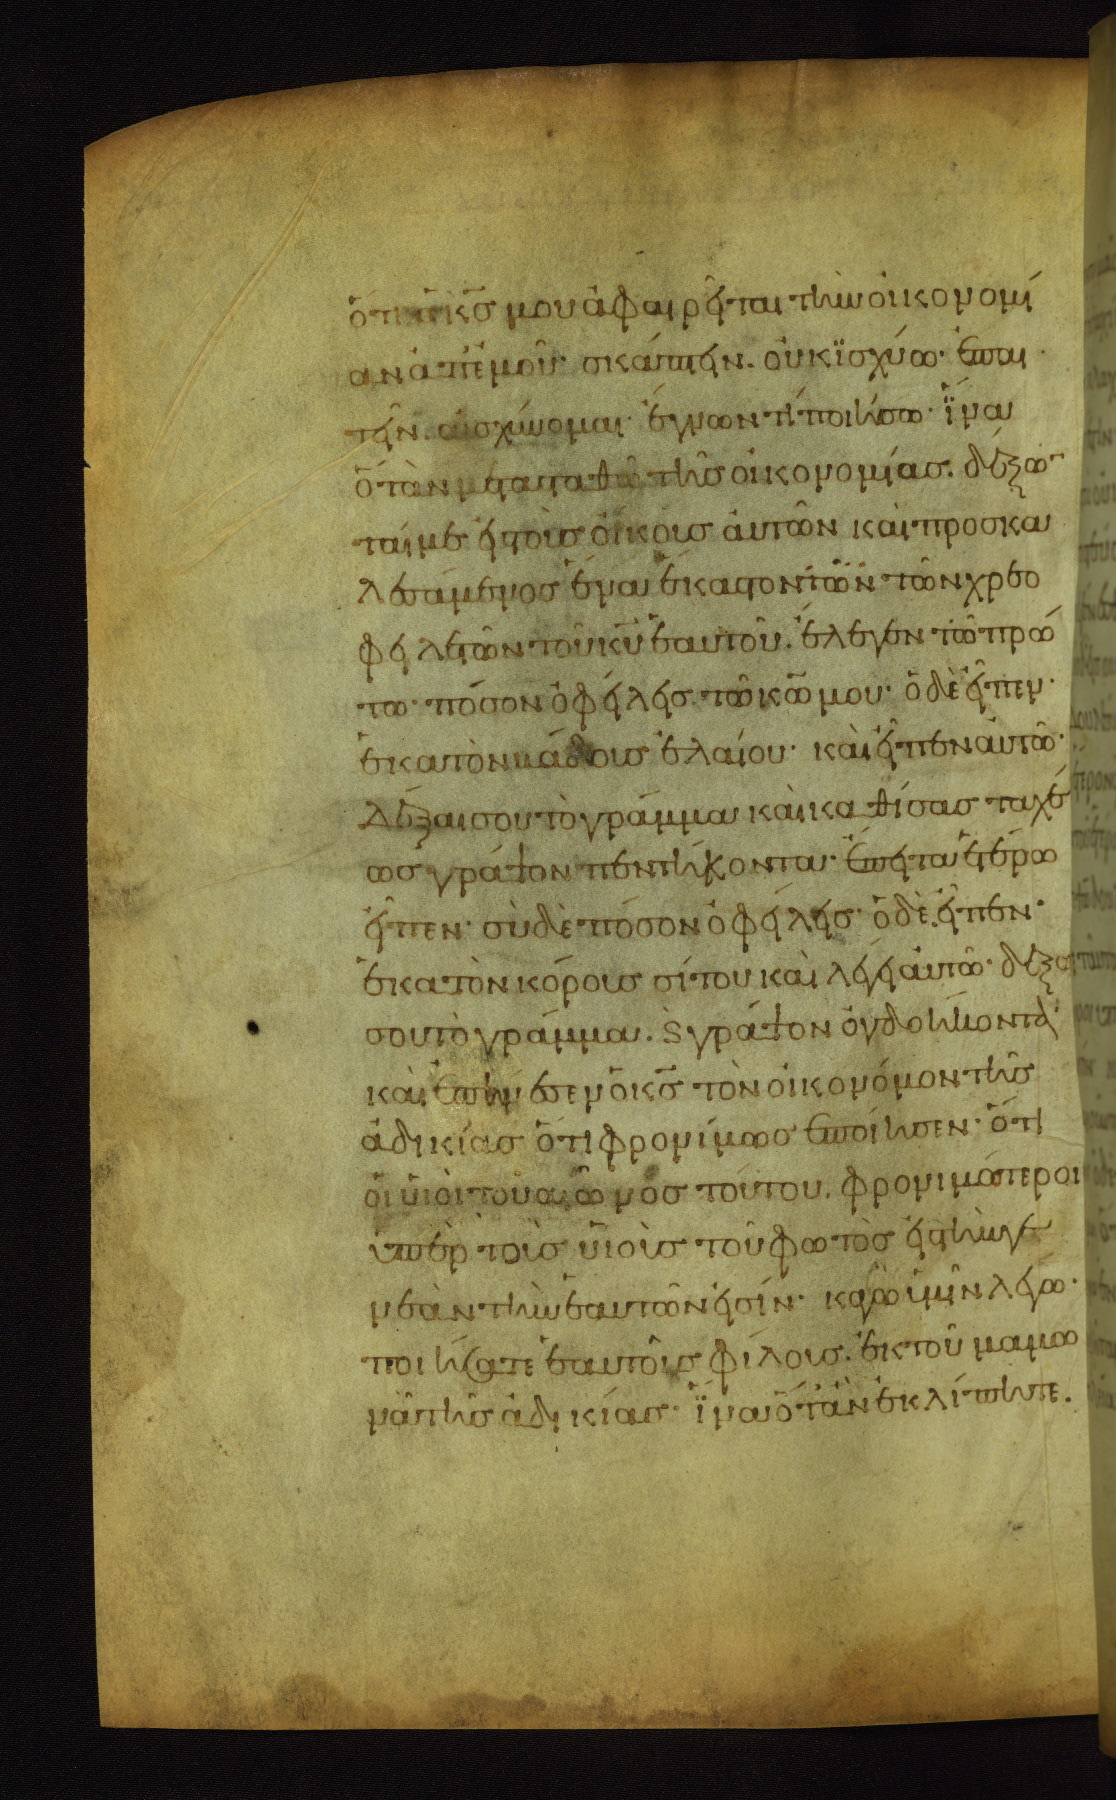 ὅτι ὁ κ̅ς̅ μου ἀφαιρεῖται τὴν οἰκονομί
αν ἀπ' ἐμοῦ· σκάπτειν. οὐκ ἰσχύω· ἐπαι
τεῖν. αἰσχύνομαι· ἔγνων τί ποιήσω· ἵνα
ὅταν μετασταθῶ τῆς οἰκονομίας. δέξων
ταί με εἰς τοὺς οἴκους αὐτῶν· καὶ προσκα
λεσάμενος ἕνα ἕκαστον τῶν χρεο
φειλετῶν τοῦ κ̅υ̅ ἑαυτοῦ. ἔλεγεν τῶ πρώ
τω· πόσον ὀφείλεις τῶ κ̅ω̅ μου· ὁ δὲ εἶπεν·
ἑκατὸν βάδους ἐλαίου· καὶ εἶπεν αὐτῶ·
δέξαι σου τὸ γράμμα καὶ καθίσας ταχέ
ως γράψον πεντήκοντα· ἔπειτα ἑτέρω
εἶπεν· σὺ δὲ πόσον ὀφείλεις· ὁ δὲ εἶπεν·
ἑκατὸν κόρους σίτου καὶ λέγει αὐτῶ· δέξαι
σου τὸ γράμμα. ϗ γράψον ὀγδοήκοντα·
καὶ ἐπήνεσεν ὁ κ̅ς̅ τὸν οἰκονόμον τῆς
ἀδικίας ὅτι φρονίμως ἐποίησεν· ὅτι
οἱ υἱοὶ τοῦ αἰῶνος τούτου. φρονιμώτεροι
ὑπὲρ τοὺς υἱοὺς τοῦ φωτὸς εἰς τὴν γε
νεὰν τὴν ἑαυτῶν εἰσίν· κἀγὼ ὑμῖν λέγω·
ποιήσατε ἑαυτοῖς φίλους. ἐκ τοῦ μαμω
νᾶ τῆς ἀδικίας· ἵνα ὅταν ἐκλίπητε.